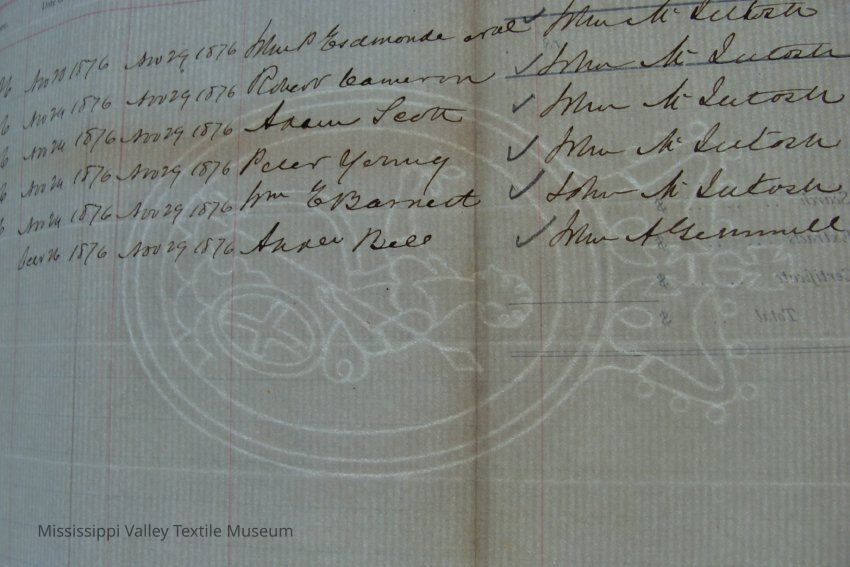 Nov 20 1876 Nov 29 1876 John P Esdmonde et al John McIntosh
Nov 24 1876 Nov 29 1876 Robert Cameron John McIntosh
Nov 24 1876 Nov 29 1876 Adam Scott John McIntosh
Nov 24 1876 Nov 29 1876 Peter Young John McIntosh
Nov 24 1876 Nov 29 1876 Wm E Barnett John McIntosh
1876 Nov 29 1876 Andw Bell John A Gemmill
Search $
Extracts $
Certificate $
Total $
Mississippi Valley Textile Museum